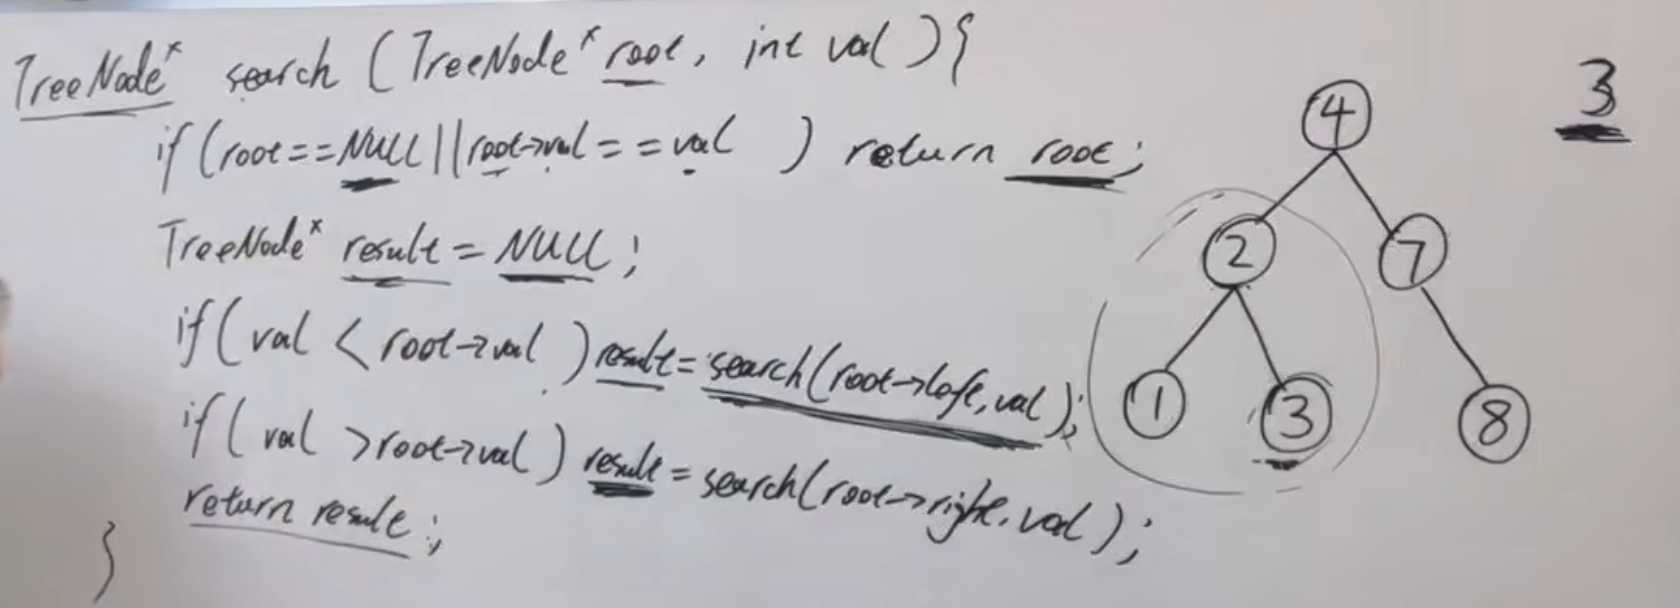 TreeNode* search (TreeNode* root, int val){
if (root==NULL||root->val==val) return root;
TreeNode* result = NULL;
if( val < root->val ) result = search(root->left, val);
if( val >root->val) result = search(root->right, val);
return result;
}
3
4
2 7
1 3 8